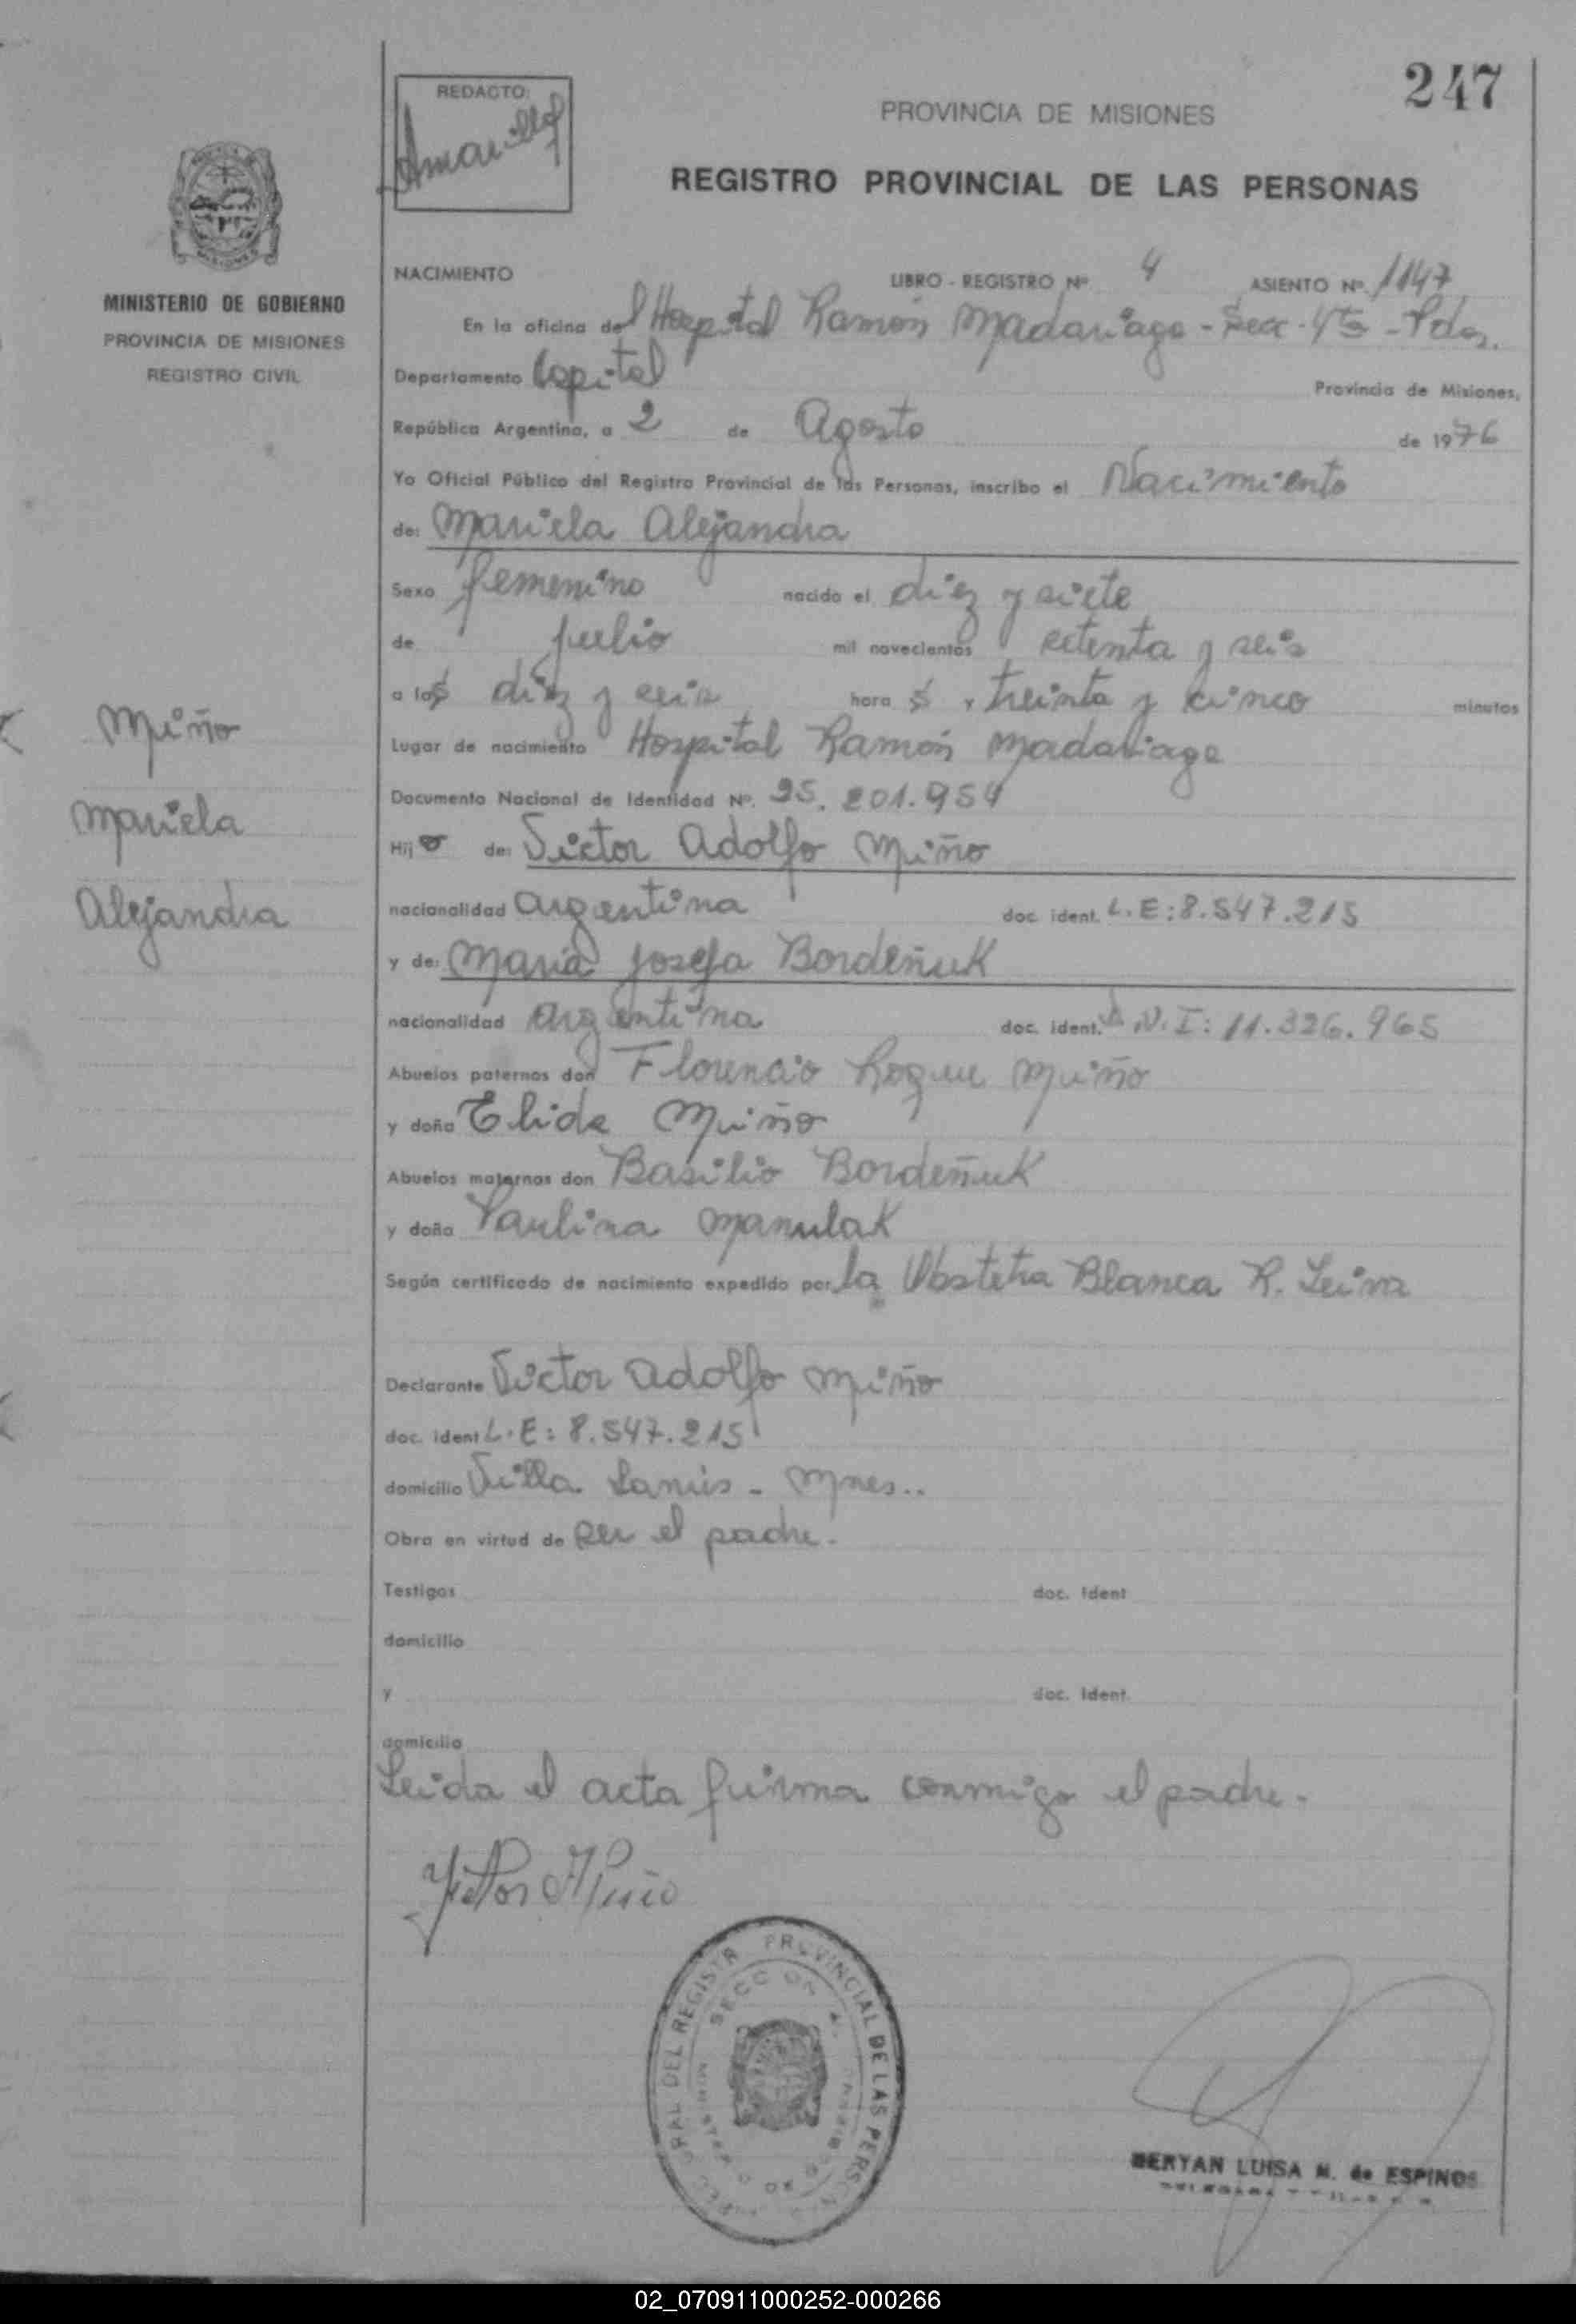 247
REDACTO:
Amarilla
PROVINCIA DE MISIONES
REGISTRO PROVINCIAL DE LAS PERSONAS
MINISTERIO DE GOBIERNO
PROVINCIA DE MISIONES
REGISTRO CIVIL
NACIMIENTO LIBRO - REGISTRO Nº 4 ASIENTO Nº 1147
En la oficina del Hospital Ramón Madariaga - Secc - 4ta - Pdas.
Departamento Capital Provincia de Misiones,
República Argentina, a 2 de Agosto de 1976
Yo Oficial Público del Registro Provincial de las Personas, inscribo el Nacimiento
de: Mariela Alejandra
Sexo femenino nacido el diez y siete
de julio mil novecientos setenta y seis
a las diez y seis hora s y treinta y cinco minutos
Lugar de nacimiento Hospital Ramón Madariaga
Documento Nacional de Identidad Nº. 25.201.954
Hija de: Victor Adolfo Miño
nacionalidad argentina doc. ident. L.E: 8.547.215
y de: María Josefa Bordeñuk
nacionalidad argentina doc. ident. D.N.I: 11.326.965
Abuelos paternos don Florencio Roque Miño
y doña Elida Miño
Abuelos maternos don Basilio Bordeñuk
y doña Paulina Manulak
Según certificado de nacimiento expedido por la Obstetra Blanca R. Leiva
Declarante Victor Adolfo Miño
doc. ident L.E: 8.547.215
domicilio Villa Lanús - Mnes..
Obra en virtud de ser el padre.
Testigos doc. ident
domicilio
y doc. ident.
domicilio
Leida el acta firma conmigo el padre.
Miño
Mariela
Alejandra
Victor Miño
DEL REGISTR PROVINCIAL DE LAS PERSON
SECCION 4
BERYAN LUISA M. de ESPINOS
02_070911000252-000266